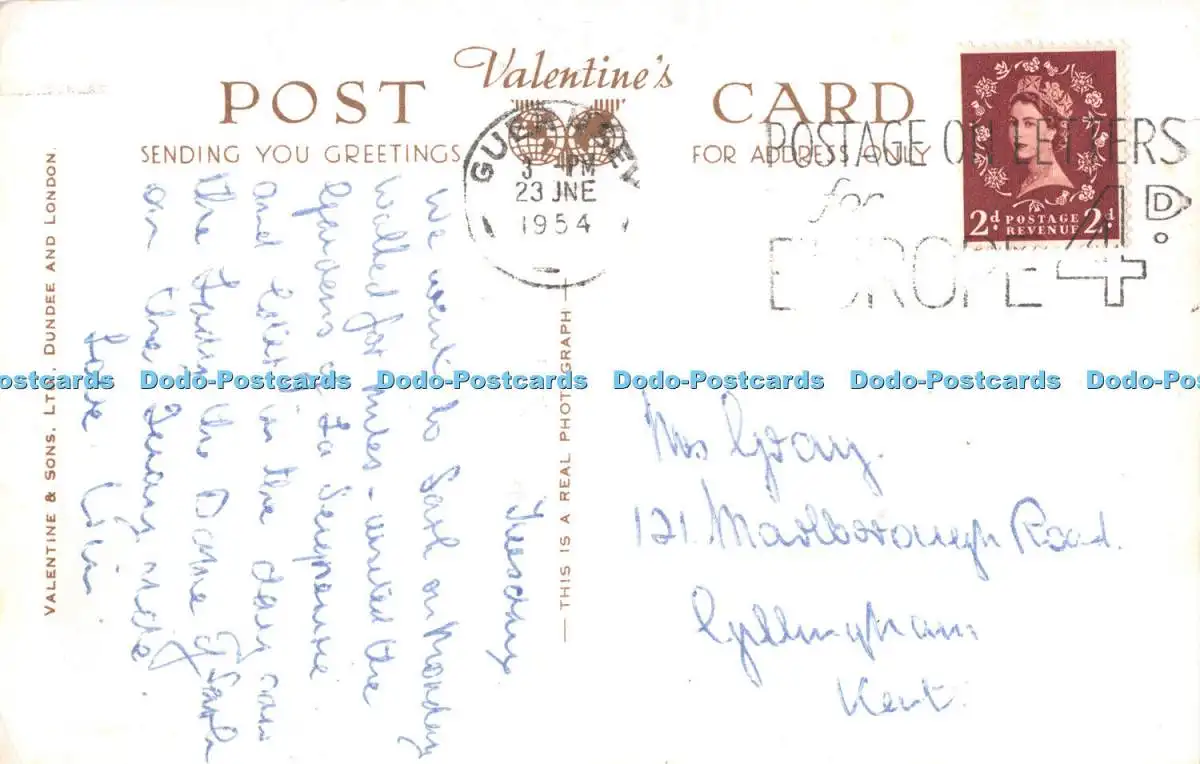 Valentine's
POST CARD
SENDING YOU GREETINGS FOR ADDRESS ONLY
GUERNSEY
3 - PM
23 JNE
1954
POSTAGE ON LETTERS
for
EUROPE 4D.
2d POSTAGE REVENUE 2d
VALENTINE & SONS, LTD., DUNDEE AND LONDON.
THIS IS A REAL PHOTOGRAPH
Tuesday
We went to Sark on Monday
walked for miles - visited the
Gardens of La Seigneurie
and later in the day saw
the Lady the Dame of Sark
on the
Love
Mrs Gray.
121 Marlborough Road.
Gillingham
Kent.
Dodo-Postcards Dodo-Postcards Dodo-Postcards Dodo-Postcards Dodo-Postcards Dodo-Postcards